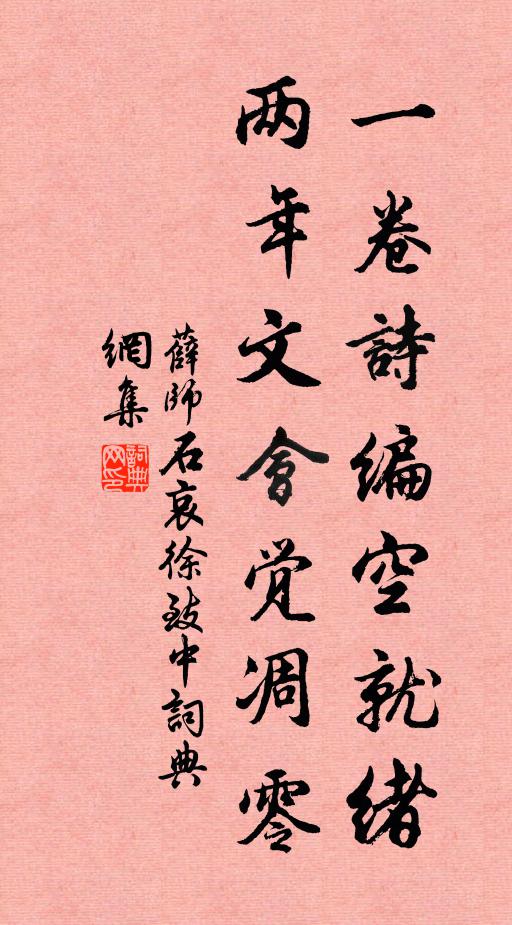 一卷詩编空就绪
两年文會觉凋零
薛師石哀徐致中詞典
網集
詞典網印